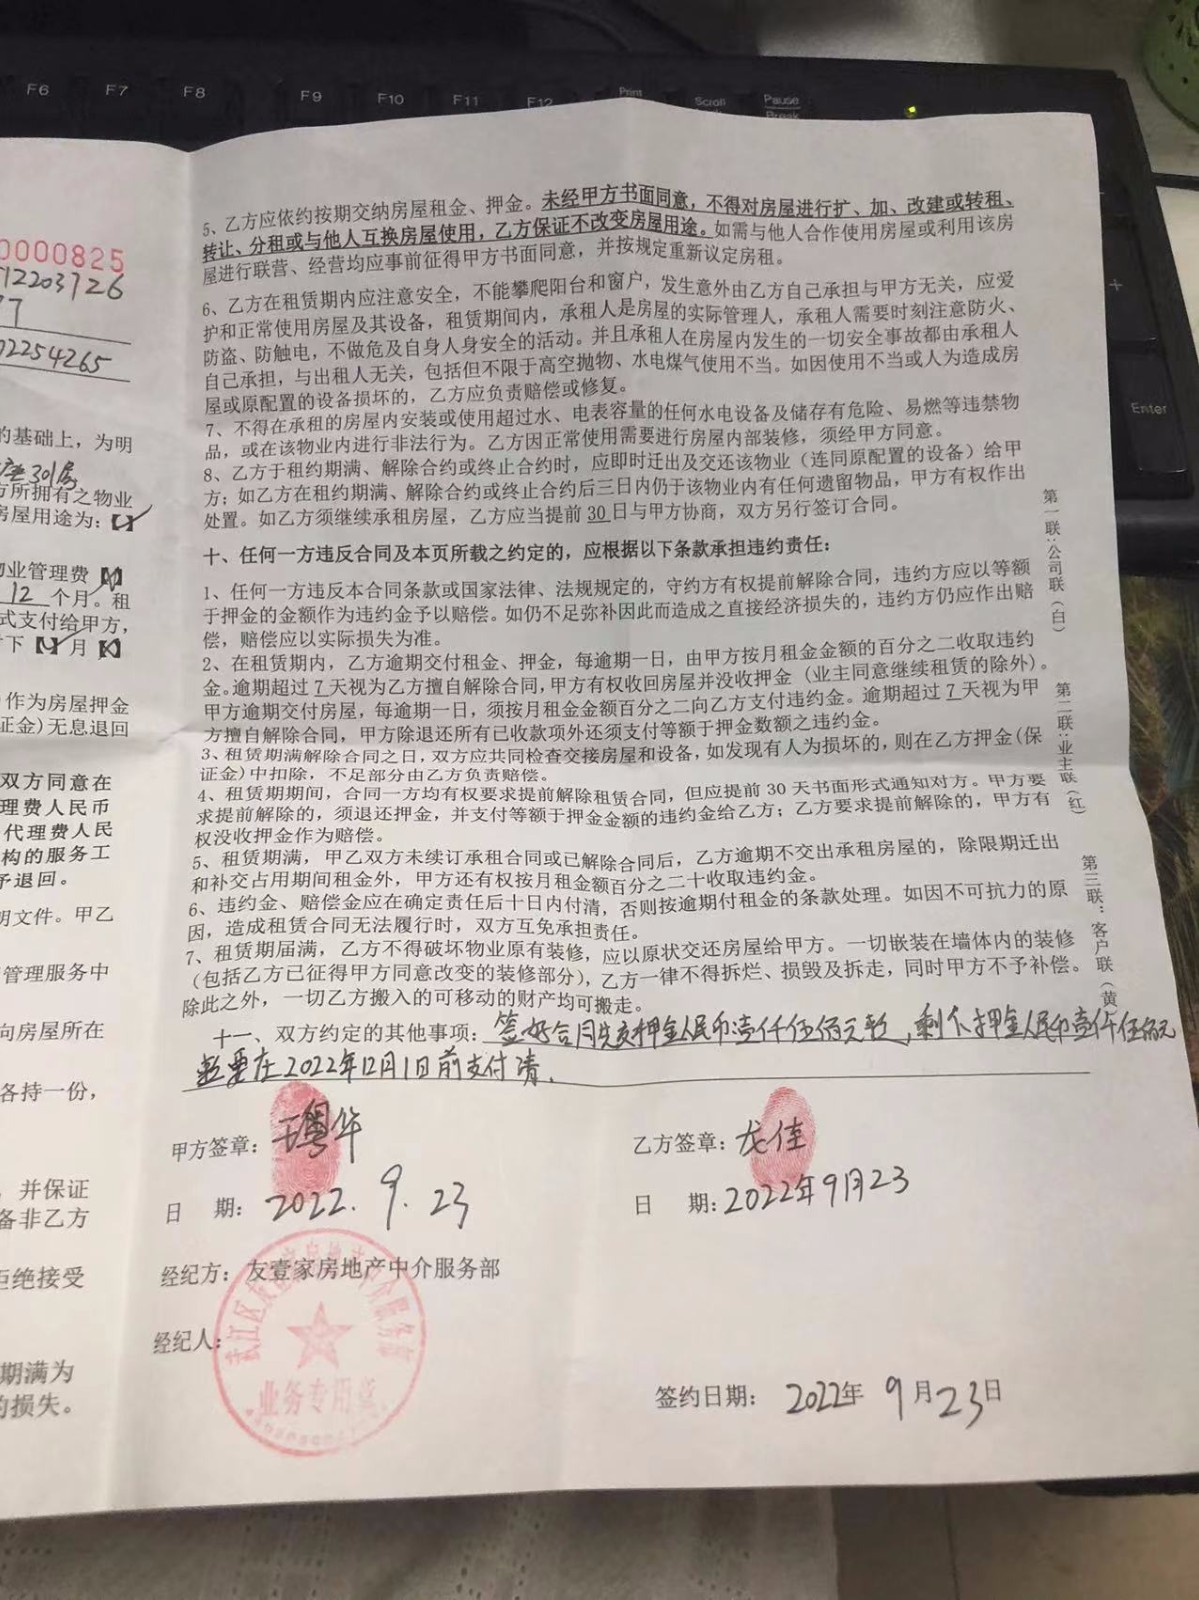 F6 F7 F8 F9 F10 F11 F12 Print Scroll Pause
Break
Enter
0000825
12203726
02254265
的基础上，为明
301房
方所拥有之物业
房屋用途为：【】
物业管理费【】
12 个月。租
式支付给甲方，
下【】月【】
作为房屋押金
证金)无息退回
双方同意在
理费人民币
代理费人民
构的服务工
予退回。
明文件。甲乙
管理服务中
向房屋所在
各持一份，
，并保证
备非乙方
拒绝接受
期满为
的损失。
5、乙方应依约按期交纳房屋租金、押金。未经甲方书面同意，不得对房屋进行扩、加、改建或转租、
转让、分租或与他人互换房屋使用，乙方保证不改变房屋用途。如需与他人合作使用房屋或利用该房
屋进行联营、经营均应事前征得甲方书面同意，并按规定重新议定房租。
6、乙方在租赁期内应注意安全，不能攀爬阳台和窗户，发生意外由乙方自己承担与甲方无关，应爱
护和正常使用房屋及其设备，租赁期间内，承租人是房屋的实际管理人，承租人需要时刻注意防火、
防盗、防触电，不做危及自身人身安全的活动。并且承租人在房屋内发生的一切安全事故都由承租人
自己承担，与出租人无关，包括但不限于高空抛物、水电煤气使用不当。如因使用不当或人为造成房
屋或原配置的设备损坏的，乙方应负责赔偿或修复。
7、不得在承租的房屋内安装或使用超过水、电表容量的任何水电设备及储存有危险、易燃等违禁物
品，或在该物业内进行非法行为。乙方因正常使用需要进行房屋内部装修，须经甲方同意。
8、乙方于租约期满、解除合约或终止合约时，应即时迁出及交还该物业（连同原配置的设备）给甲
方；如乙方在租约期满、解除合约或终止合约后三日内仍于该物业内有任何遗留物品，甲方有权作出
处置。如乙方须继续承租房屋，乙方应当提前 30 日与甲方协商，双方另行签订合同。
十、任何一方违反合同及本页所载之约定的，应根据以下条款承担违约责任：
1、任何一方违反本合同条款或国家法律、法规规定的，守约方有权提前解除合同，违约方应以等额
于押金的金额作为违约金予以赔偿。如仍不足弥补因此而造成之直接经济损失的，违约方仍应作出赔
偿，赔偿应以实际损失为准。
2、在租赁期内，乙方逾期交付租金、押金，每逾期一日，由甲方按月租金金额的百分之二收取违约
金。逾期超过 7 天视为乙方擅自解除合同，甲方有权收回房屋并没收押金（业主同意继续租赁的除外）。
甲方逾期交付房屋，每逾期一日，须按月租金金额百分之二向乙方支付违约金。逾期超过 7 天视为甲
方擅自解除合同，甲方除退还所有已收款项外还须支付等额于押金数额之违约金。
3、租赁期满解除合同之日，双方应共同检查交接房屋和设备，如发现有人为损坏的，则在乙方押金(保
证金)中扣除，不足部分由乙方负责赔偿。
4、租赁期期间，合同一方均有权要求提前解除租赁合同，但应提前 30 天书面形式通知对方。甲方要
求提前解除的，须退还押金，并支付等额于押金金额的违约金给乙方；乙方要求提前解除的，甲方有
权没收押金作为赔偿。
5、租赁期满，甲乙双方未续订承租合同或已解除合同后，乙方逾期不交出承租房屋的，除限期迁出
和补交占用期间租金外，甲方还有权按月租金额百分之二十收取违约金。
6、违约金、赔偿金应在确定责任后十日内付清，否则按逾期付租金的条款处理。如因不可抗力的原
因，造成租赁合同无法履行时，双方互免承担责任。
7、租赁期届满，乙方不得破坏物业原有装修，应以原状交还房屋给甲方。一切嵌装在墙体内的装修
(包括乙方已征得甲方同意改变的装修部分)，乙方一律不得拆烂、损毁及拆走，同时甲方不予补偿。
除此之外，一切乙方搬入的可移动的财产均可搬走。
十一、双方约定的其他事项：签好合同先交押金人民币壹仟伍佰元整，剩下押金人民币壹仟伍佰元
整要在2022年12月1日前支付清.
甲方签章：王粤华
乙方签章：龙佳
日 期：2022.9.23
日 期：2022年9月23
经纪方：友壹家房地产中介服务部
经纪人：
业务专用章
签约日期：2022年 9月23日
第一联：公司联（白）
第二联：业主联（红）
第三联：客户联（黄